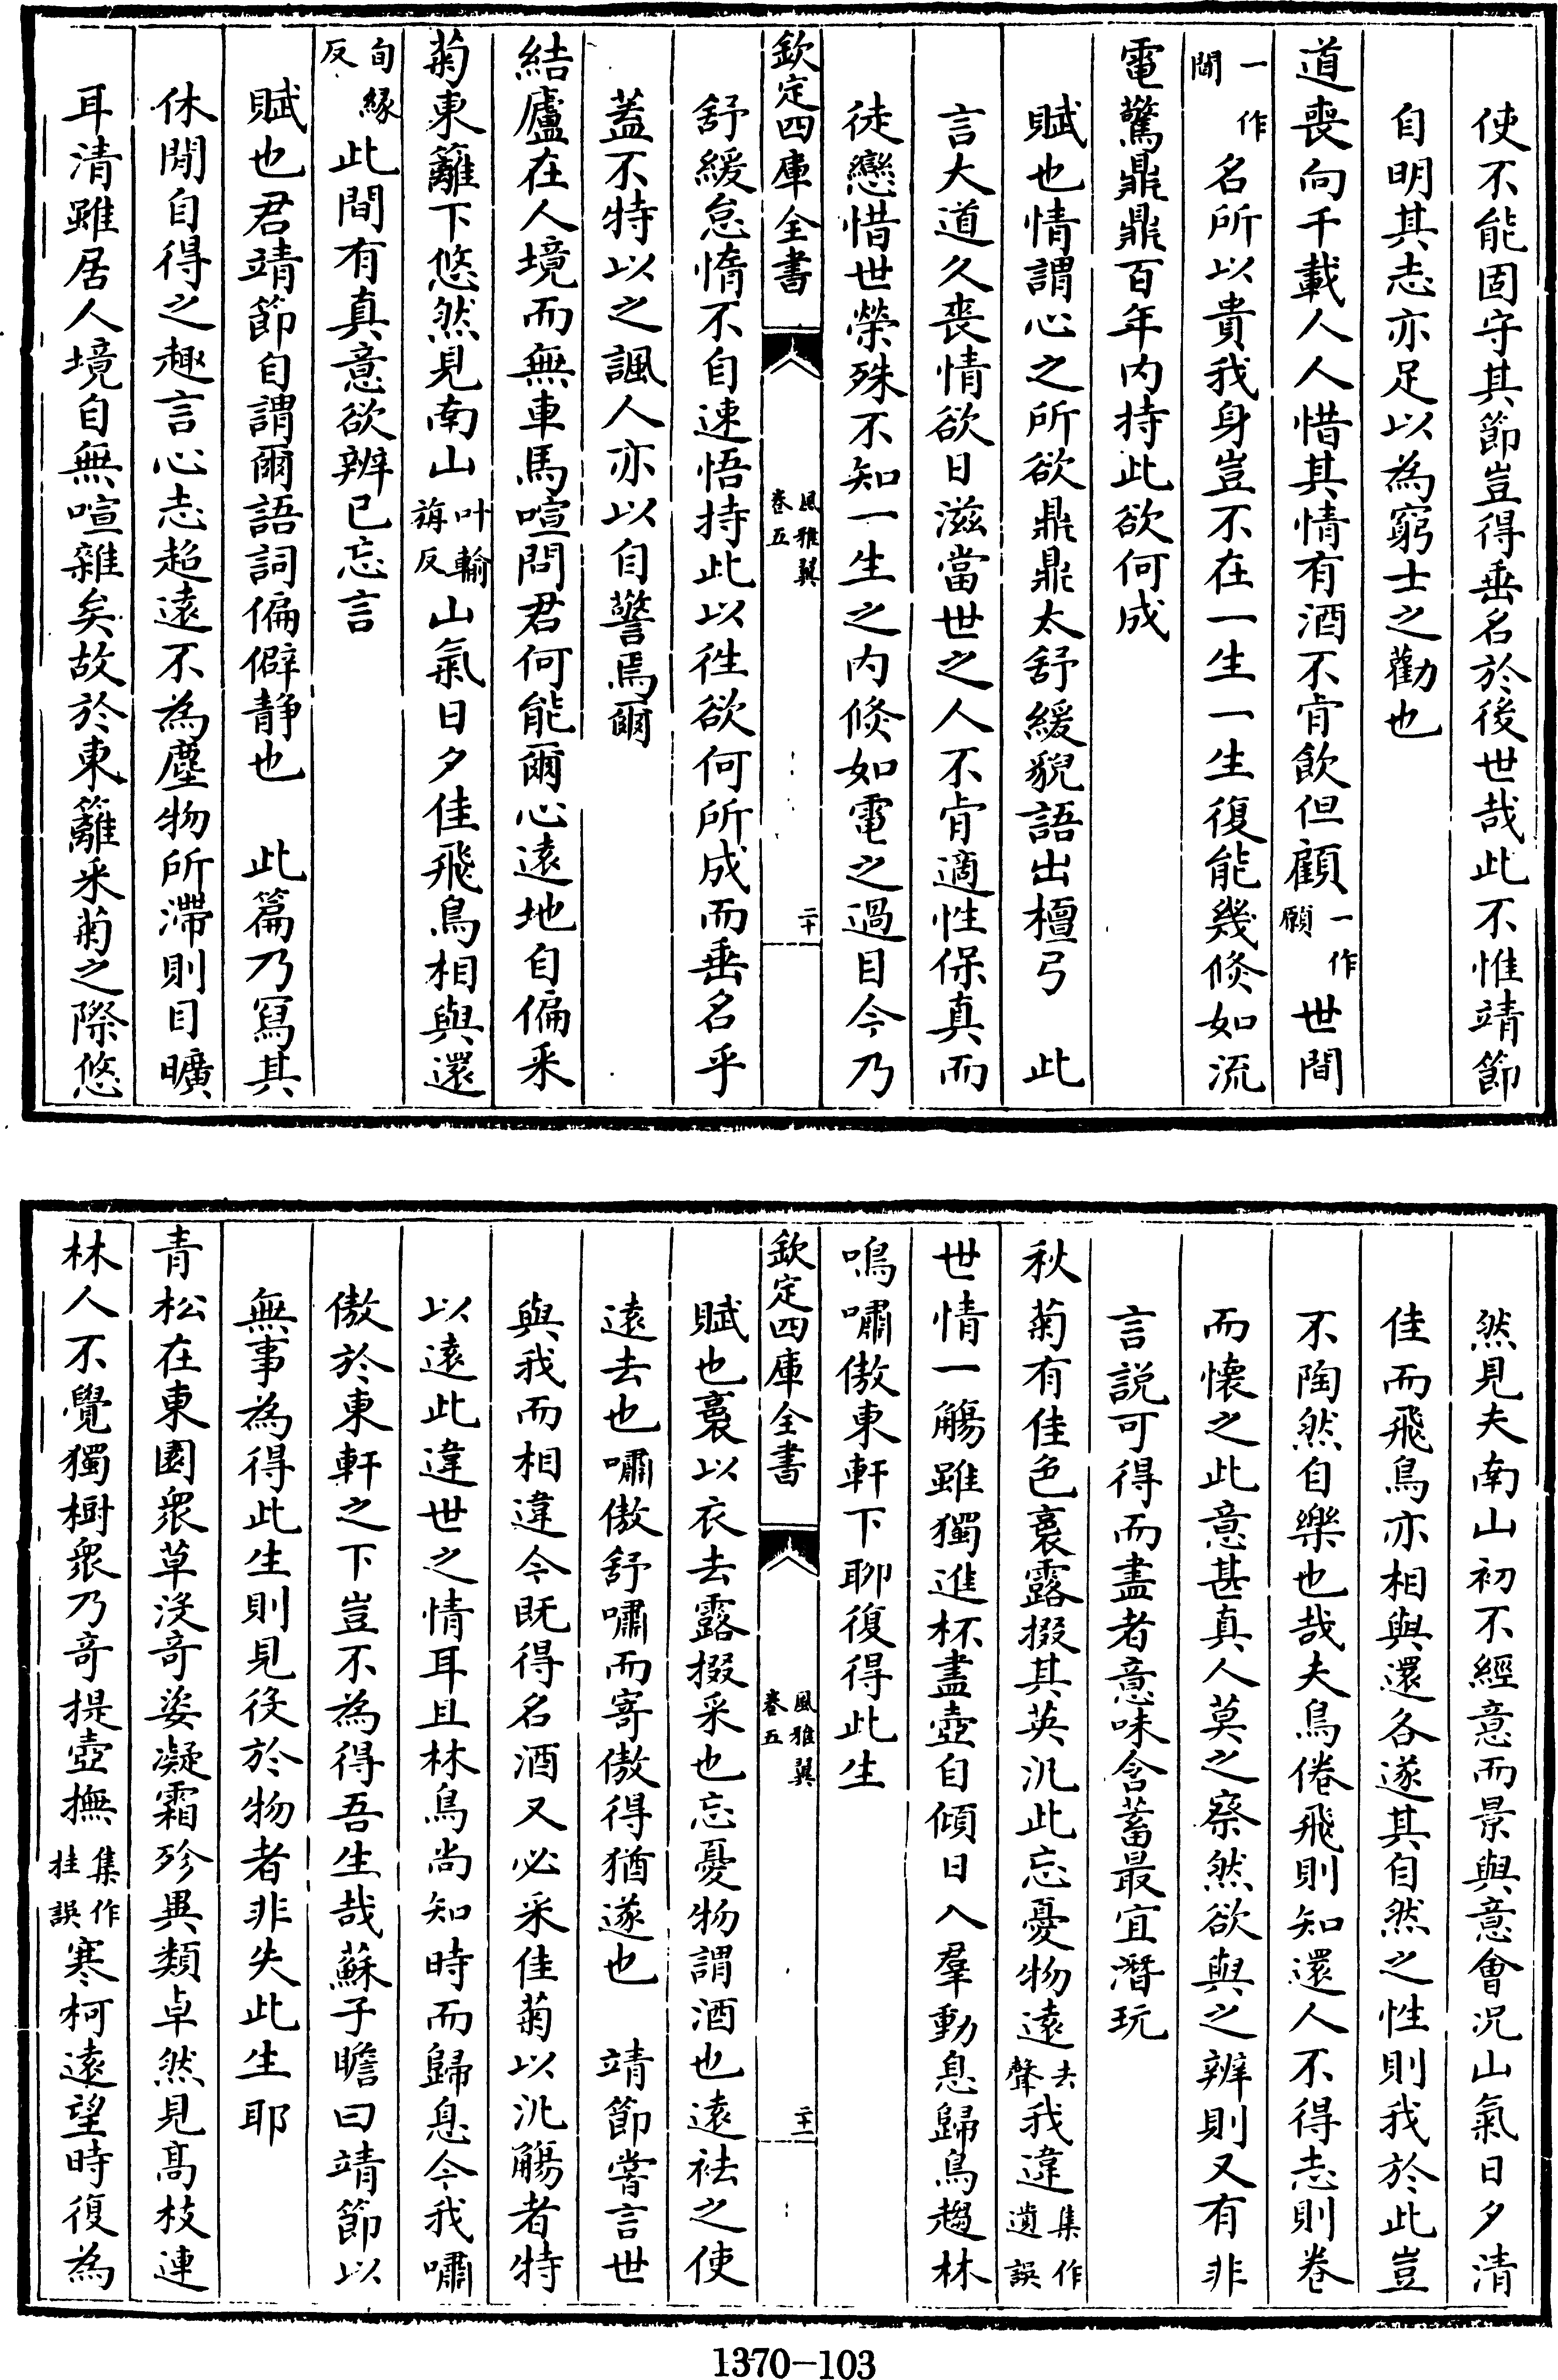 使不能固守其節豈得垂名於後世哉此不惟靖節
自明其志亦足以為窮士之勸也
道喪向千載人人惜其情有酒不肯飲但顧一作願世間
一作間名所以貴我身豈不在一生一生復能幾倏如流
電驚鼎鼎百年内持此欲何成
賦也情謂心之所欲鼎鼎太舒緩貌語出檀弓　此
言大道久喪情欲日滋當世之人不肯適性保真而
徒戀惜世榮殊不知一生之内倏如電之過目今乃
欽定四庫全書
風雅翼
卷五
二十
舒緩怠惰不自速悟持此以徃欲何所成而垂名乎
蓋不特以之諷人亦以自警焉爾
結廬在人境而無車馬喧問君何能爾心遠地自偏采
菊東籬下悠然見南山叶輸旃反山氣日夕佳飛鳥相與還
旬緣反此間有真意欲辨已忘言
賦也君靖節自謂爾語詞偏僻静也　此篇乃冩其
休閒自得之趣言心志超遠不為塵物所滯則目曠
耳清雖居人境自無喧雜矣故於東籬采菊之際悠
然見夫南山初不經意而景與意會况山氣日夕清
佳而飛鳥亦相與還各遂其自然之性則我於此豈
不陶然自樂也哉夫鳥倦飛則知還人不得志則卷
而懷之此意甚真人莫之察然欲與之辨則又有非
言説可得而盡者意味含蓄最宜潛玩
秋菊有佳色裛露掇其英汎此忘憂物遠去聲我違集作遺誤
世情一觴雖獨進杯盡壺自傾日入羣動息歸鳥趨林
鳴嘯傲東軒下聊復得此生
欽定四庫全書
風雅翼
卷五
二十一
賦也裛以衣去露掇采也忘憂物謂酒也遠袪之使
遠去也嘯傲舒嘯而寄傲得猶遂也　靖節嘗言世
與我而相違今既得名酒又必采佳菊以汎觴者特
以遠此違世之情耳且林鳥尚知時而歸息今我嘯
傲於東軒之下豈不為得吾生哉蘇子瞻曰靖節以
無事為得此生則見役於物者非失此生耶
青松在東園衆草沒奇姿凝霜殄異類卓然見高枝連
林人不覺獨樹衆乃奇提壺撫集作挂誤寒柯遠望時復為
1370-103